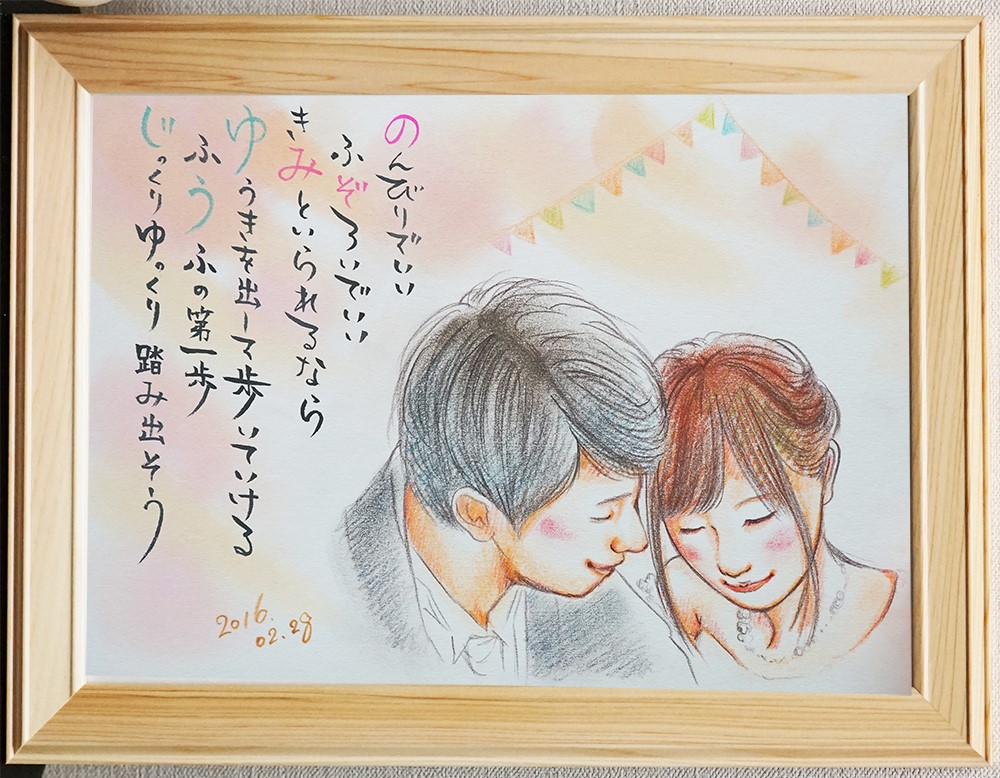 のんびりでいい
ふぞろいでいい
きみといられるなら
ゆうきを出して歩いていける
ふうふの第一歩
じっくりゆっくり踏み出そう
2016.
02.28